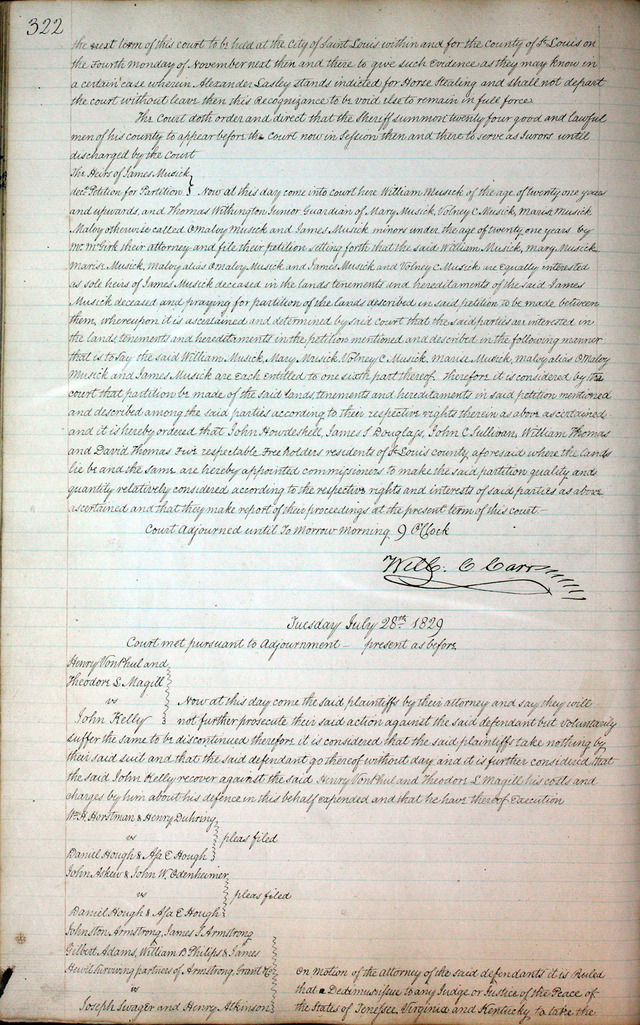 322
the next term of this court to be held at the City of Saint Louis within and for the County of St Louis on
the Fourth monday of November next then and there to give such Evidence as they may know in
a certain case wherein Alexander Lasley stands indicted for Horse Stealing and shall not depart
the court without leave then this Recognizance to be void else to remain in full force
The Court doth order and direct that the Sheriff summon twenty four good and lawful
men of his county to appear before the Court now in Session then and there to serve as Jurors until
discharged by the Court
The Heirs of James Musick
decd Petition for Partition } Now at this day come into court here William Musick of the age of twenty one years
and upwards, and Thomas Withington Junior Guardian of Mary Musick, Volney C Musick, Maria Musick
Maloy otherwise called OMaloy Musick and James Musick minors under the age of twenty one years by
Mc McGirk their attorney and file their petition setting forth that the said William Musick, Mary Musick
Marie Musick, Maloy alias OMaloy Musick and James Musick and Volney C Musick are Equally interested
as sole heirs of James Musick deceased in the lands tenements and hereditaments of the said James
Musick deceased and praying for partition of the lands described in said petition to be made between
them, whereupon it is ascertained and determined by said court that the said parties are interested in
the lands tenements and hereditaments in the petition mentioned and described in the following manner
that is to say the said William Musick, Mary Musick, Volney C Musick, Marie Musick, Maloy alias OMaloy
Musick and James Musick are Each Entitled to one sixth part thereof. Therefore it is considered by the
court that partition be made of the said lands tenements and hereditaments in said petition mentioned
and described among the said parties according to their respective rights therein as above ascertained
and it is hereby ordered that John Howdeshell, James S Douglass, John C Sullivan, William Thomas
and David Thomas Five respectable Free holders residents of St Louis county, aforesaid where the lands
lie be and the same are hereby appointed commissioners to make the said partition quality and
quantity relatively considered according to the respective rights and interests of said parties as above
ascertained and that they make report of their proceedings at the present term of this court —
Court Adjourned until To Morrow Morning 9 OClock
Will: C Carr
Tuesday July 28th 1829
Court met pursuant to Adjournment — present as before
Henry VonPhul and
Theodore L Magill
vs } Now at this day come the said plaintiffs by their attorney and say they will
John Kelly } not further prosecute their said action against the said defendant but voluntarily
suffer the same to be discontinued therefore it is considered that the said plaintiffs take nothing by
their said suit and that the said defendant go thereof without day and it is further considered that
the said John Kelly recover against the said Henry VonPhul and Theodore L Magill his costs and
charges by him about his defence in this behalf expended and that he have thereof Execution
Wm H Horstman & Henry Duhring
vs } pleas filed
Daniel Hough & Asa E Hough
John Askew & John W. Odenheimer
vs } pleas filed
Daniel Hough & Asa E Hough
Johnston Armstrong, James I Armstrong
Gilbert Adams, William B Philips & James
Hewit surviving partners of Armstrong, Grant &Co } On motion of the attorney of the said defendants it is Ruled
vs } that a Dedimus issue to any Judge or Justice of the Peace of
Joseph Swager and Henry Atkinson } the States of Tenessee, Virginia and Kentucky to take the